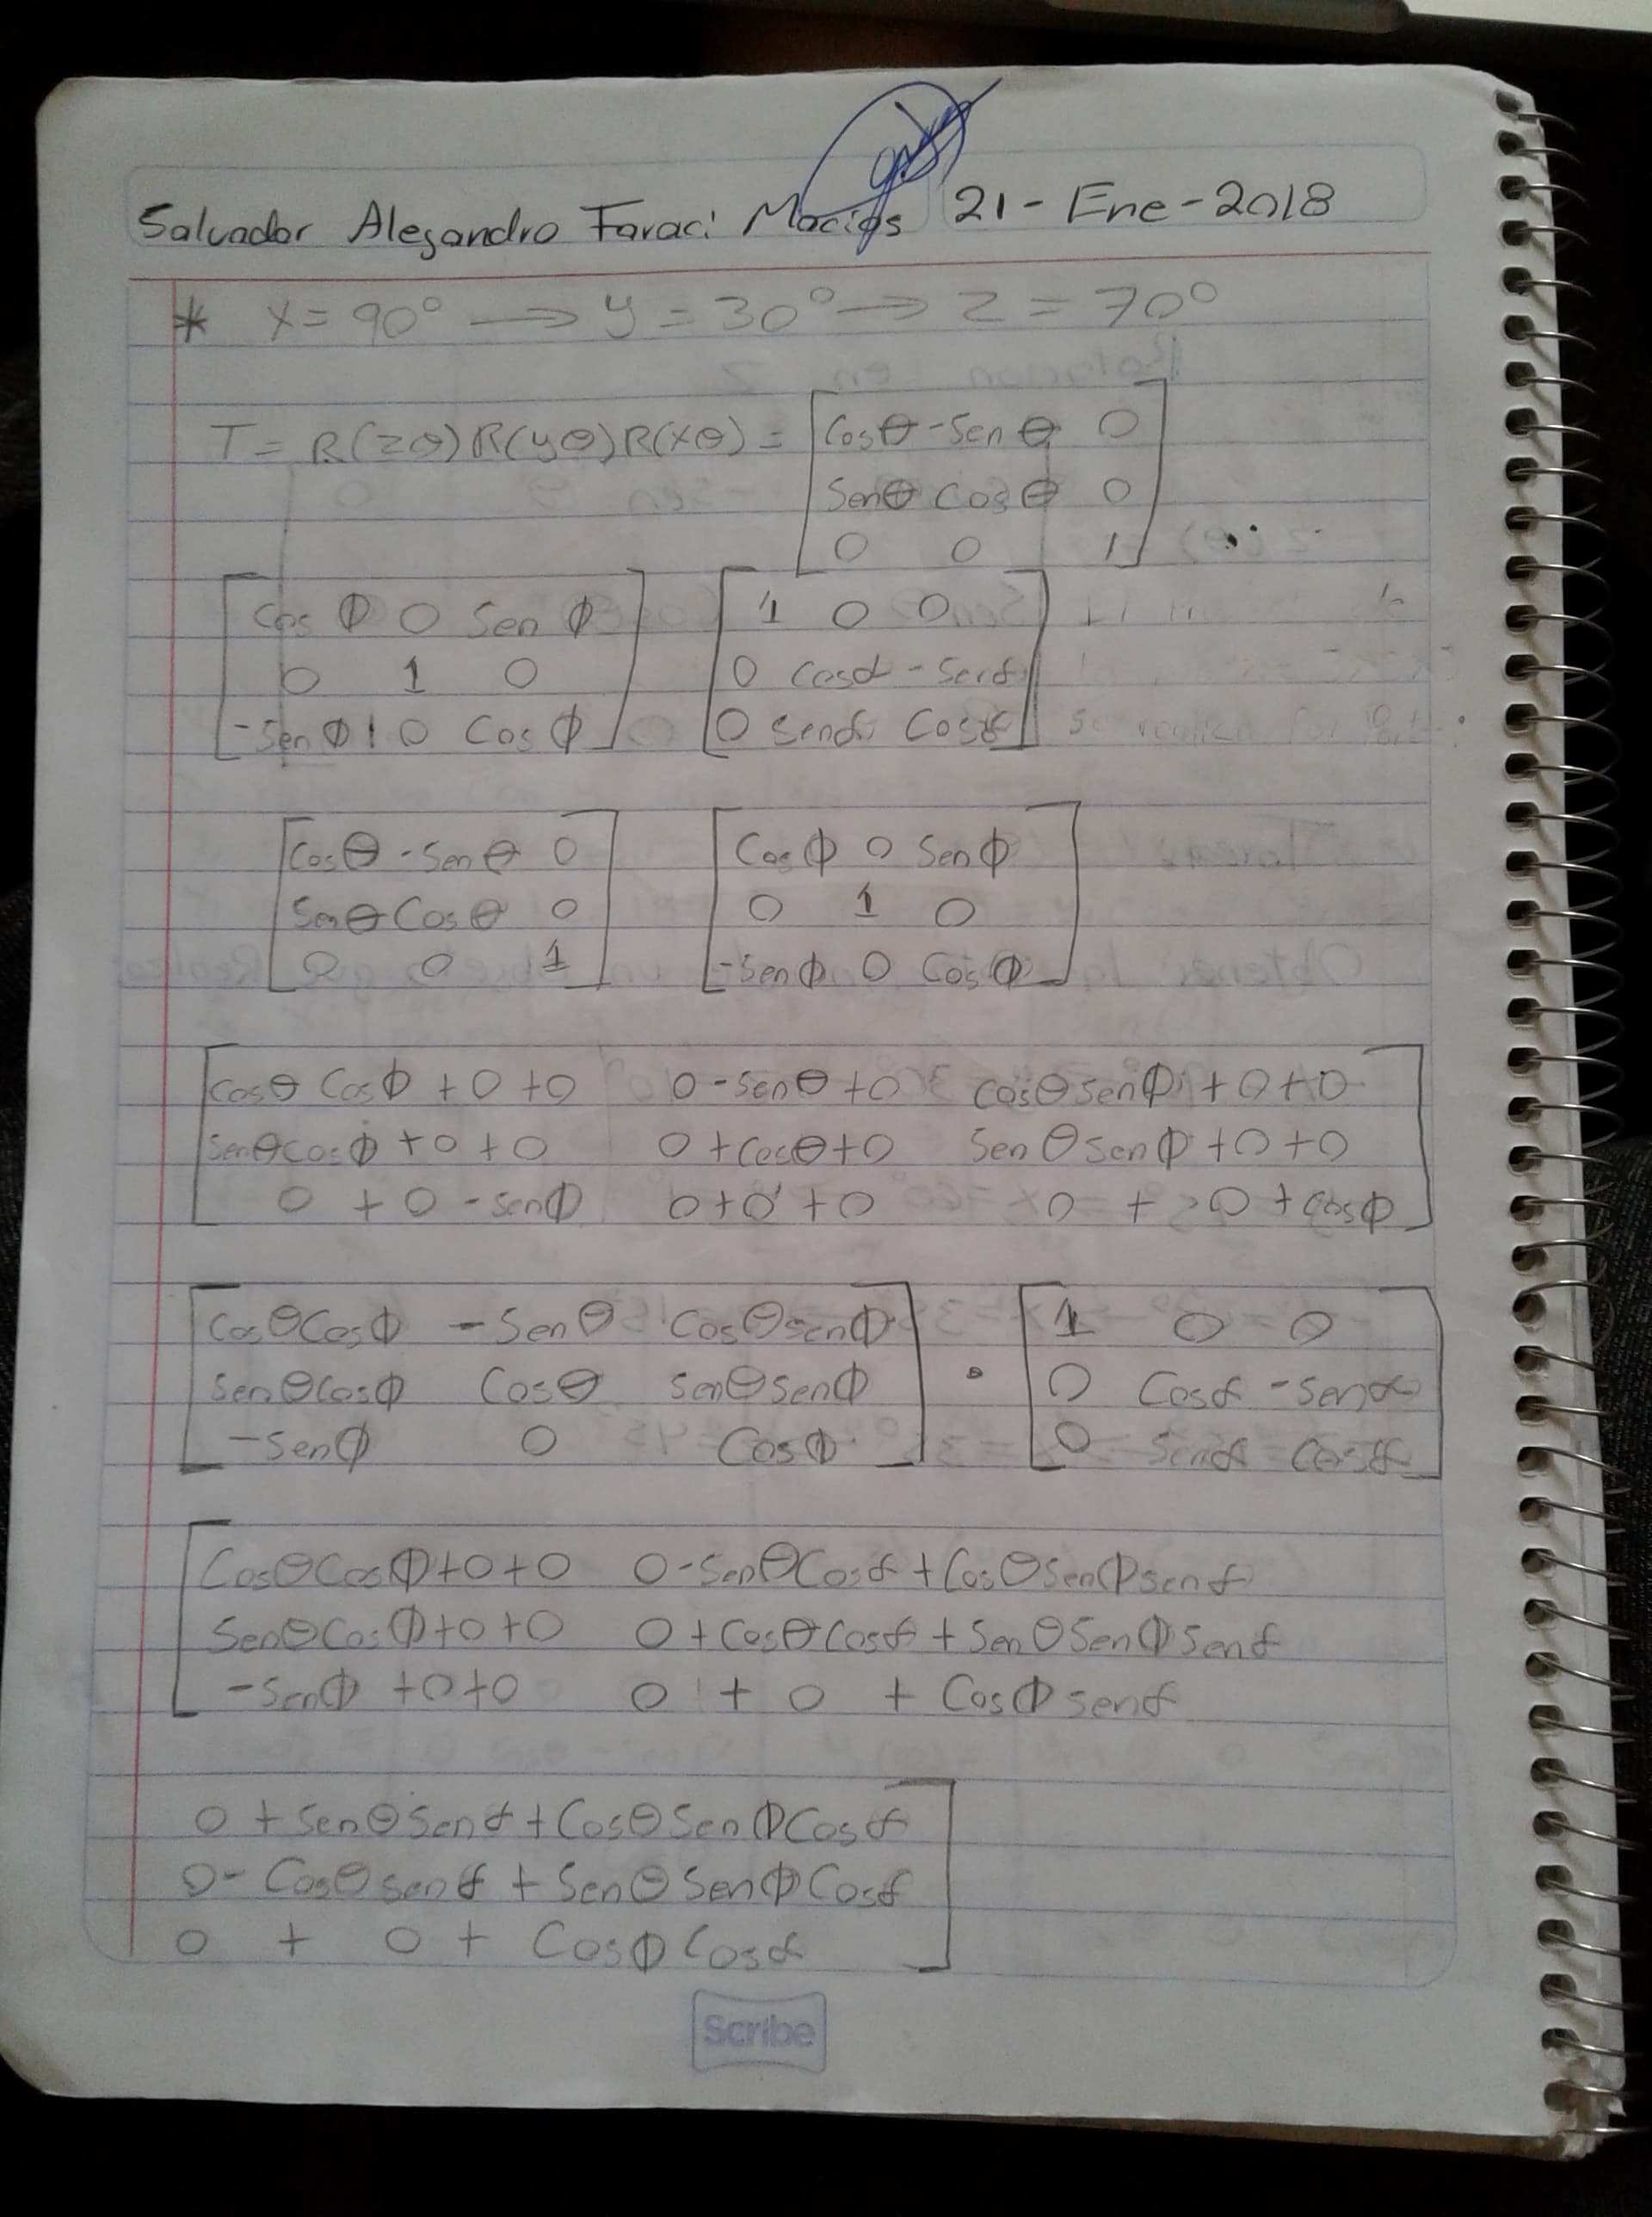 Salvador Alejandro Faraci Macias 21-Ene-2018
* X=90° → y=30° → Z=70°
T= R(zθ)R(yθ)R(xθ) = [Cosθ -Senθ 0
Senθ Cosθ 0
0 0 1]
[Cos ϕ 0 Sen ϕ [1 0 0
0 1 0] 0 Cosα -Senα
-Sen ϕ 0 Cos ϕ] 0 Senα Cosα]
[Cosθ -Senθ 0 [Cos ϕ 0 Sen ϕ
Senθ Cosθ 0 0 1 0
0 0 1] -Sen ϕ 0 Cos ϕ]
[Cosθ Cosϕ +0+0 0-Senθ+0 CosθSenϕ+0+0
SenθCosϕ+0+0 0+Cosθ+0 SenθSenϕ+0+0
0+0-Senϕ 0+0+0 0+0+Cosϕ]
[CosθCosϕ -Senθ CosθSenϕ] · [1 0 0
SenθCosϕ Cosθ SenθSenϕ 0 Cosα -Senα
-Senϕ 0 Cosϕ] 0 Senα Cosα]
[CosθCosϕ+0+0 0-SenθCosα+CosθSenϕSenα
SenθCosϕ+0+0 0+CosθCosα+SenθSenϕSenα
-Senϕ+0+0 0+0+CosϕSenα
0+SenθSenα+CosθSenϕCosα
0-CosθSenα+SenθSenϕCosα
0+0+CosϕCosα]
Scribe